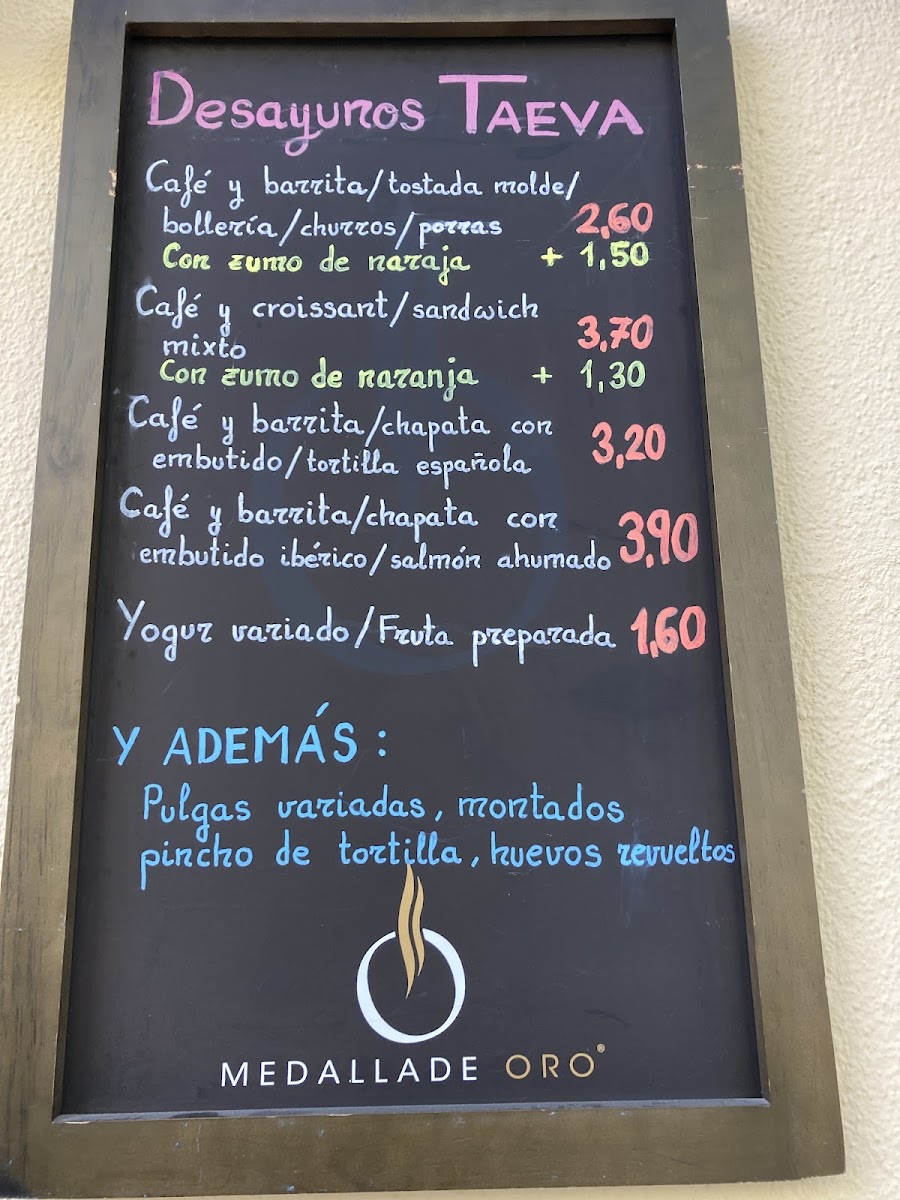 Desayunos TAEVA
Café y barrita/tostada molde/
bollería/churros/porras 2,60
Con zumo de naraja + 1,50
Café y croissant/sandwich
mixto 3,70
Con zumo de naranja + 1,30
Café y barrita/chapata con
embutido/tortilla española 3,20
Café y barrita/chapata con
embutido ibérico/salmón ahumado 3,90
Yogur variado/Fruta preparada 1,60
Y ADEMÁS:
Pulgas variadas, montados
pincho de tortilla, huevos revueltos
MEDALLADE ORO®